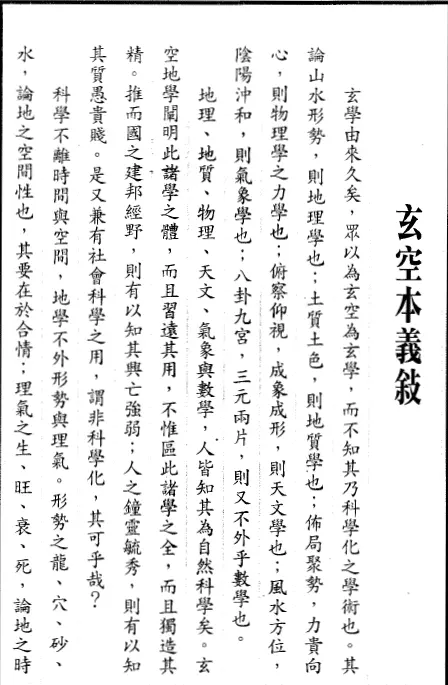 玄空本義敍
玄學由來久矣，眾以為玄空為玄學，而不知其乃科學化之學術也。其
論山水形勢，則地理學也；土質土色，則地質學也；佈局聚勢，力貴向
心，則物理學之力學也；俯察仰視，成象成形，則天文學也；風水方位，
陰陽沖和，則氣象學也；八卦九宮，三元兩片，則又不外乎數學也。
地理、地質、物理、天文、氣象與數學，人皆知其為自然科學矣。玄
空地學闡明此諸學之體，而且習遠其用，不惟區此諸學之全，而且獨造其
精。推而國之建邦經野，則有以知其興亡強弱；人之鐘靈毓秀，則有以知
其質愚貴賤。是又兼有社會科學之用，謂非科學化，其可乎哉？
科學不離時間與空間，地學不外形勢與理氣。形勢之龍、穴、砂、
水，論地之空間性也，其要在於合情；理氣之生、旺、衰、死，論地之時